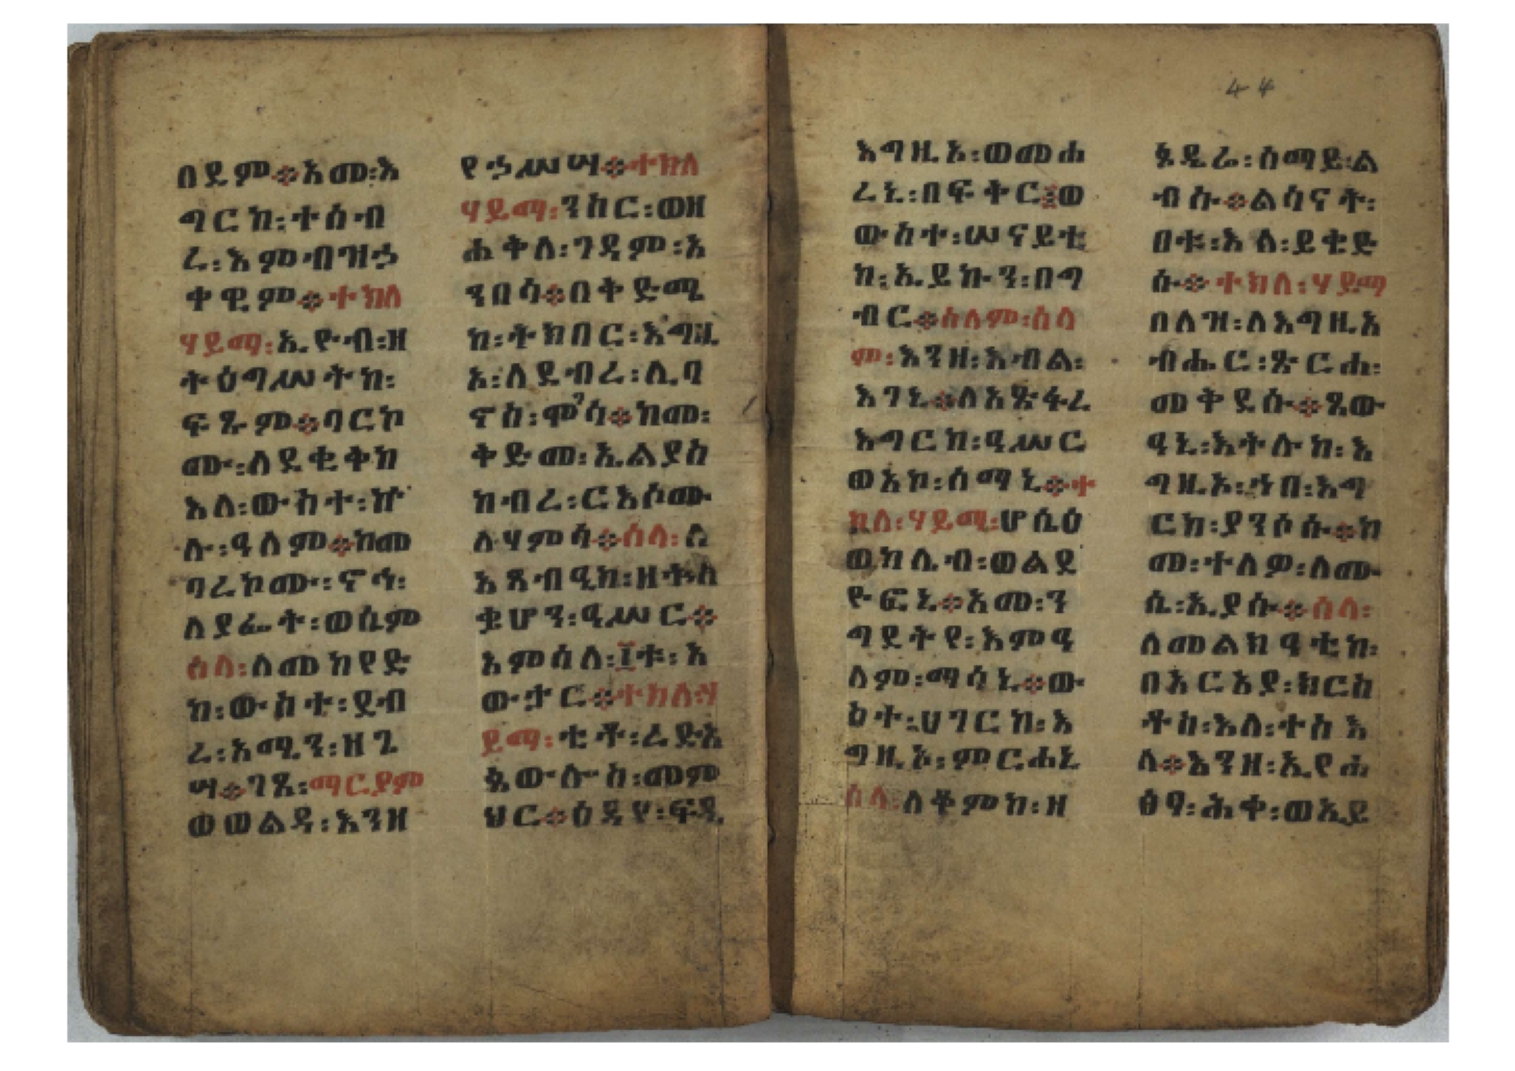 በደም፨አመ፡እ
ግርከ፡ተሰብ
ረ፡እምብዝኃ
ቀዊም፨ተክለ
ሃይማ፡ኢዮብ፡ዘ
ትዕግሥትከ፡
ፍጹም፨ባርኮ
ሙ፡ለደቂቅከ
እለ፡ውስተ፡ኵ
ሉ፡ዓለም፨ከመ
ባረኮሙ፡ኖኅ፡
ለያፌት፡ወሴም
ሰላ፡ለመከየድ
ከ፡ውስተ፡ደብ
ረ፡አሚን፡ዘጌ
ሣ፨ገጸ፡ማርያም
ወወልዳ፡እንዘ
የኃሥሣ፨ተክለ
ሃይማ፡ንከር፡ወዘ
ሐቅለ፡ገዳም፡አ
ንበሳ፨በቅድሜ
ከ፡ትክበር፡እግዚ
አ፡ለደብረ፡ሊባ
ኖስ፡ሞሳ፨ከመ፡
ቅድመ፡ኢልያስ
ከብረ፡ርእሶሙ
ለሃምሳ፨ሰላ፡ለ
አጻብዒከ፡ዘትስ
ቋሆን፡ዓሥር፨
አምሳለ፡፲ቱ፡አ
ውታር፨ተክለ፡ሃ
ይማ፡ቲቶ፡ረድአ
ጳውሎስ፡መም
ህር፨ዕዳየ፡ፍዲ
44
እግዚኦ፡ወመሐ
ረኒ፡በፍቅር፨ወ
ውስተ፡ሠናይቲ
ከ፡ኢይኩን፡በግ
ብር፨ሰላም፡ሰላ
ም፡እንዘ፡እብል፡
እገኒ፨ለአጽፋረ
እግርከ፡ዓሥር
ወአኮ፡ሰማኒ፨ተ
ክለ፡ሃይማ፡ሆሴዕ
ወካሌብ፡ወልደ
ዮፎኒ፨አመ፡ን
ግደትየ፡እምዓ
ለም፡ማሳኒ፨ው
ስተ፡ሀገርከ፡እ
ግዚኦ፡ምርሐኒ
ሰላ፡ለቆምከ፡ዘ
ጳዴሬ፡ሰማይ፡ል
ብሱ፨ልሳናት፡
በቱ፡እለ፡ይቄድ
ሱ፨ተክለ፡ሃይማ
በለዝ፡ለእግዚአ
ብሔር፡ጽርሐ፡
መቅደሱ፨ጼው
ዓኒ፡እትሉከ፡እ
ግዚኦ፡ኀበ፡እግ
ርከ፡ያንሶሱ፨ከ
መ፡ተለዎ፡ለሙ
ሴ፡ኢያሱ፨ሰላ፡
ለመልክዓቲከ፡
በአርአያ፡ክርስ
ቶስ፡እለ፡ተስእ
ለ፨እንዘ፡ኢየሐ
ፅፃ፡ሕቀ፡ወኢይ